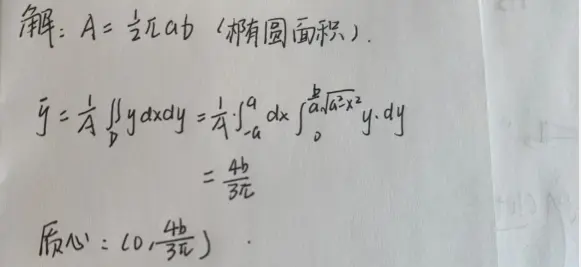 解: A = ½πab (椭圆面积).
ȳ = 1/A ∬_D y dxdy = 1/A · ∫_{-a}^{a} dx ∫_0^{b/a √(a²-x²)} y · dy
= 4b/3π
质心: (0, 4b/3π) .